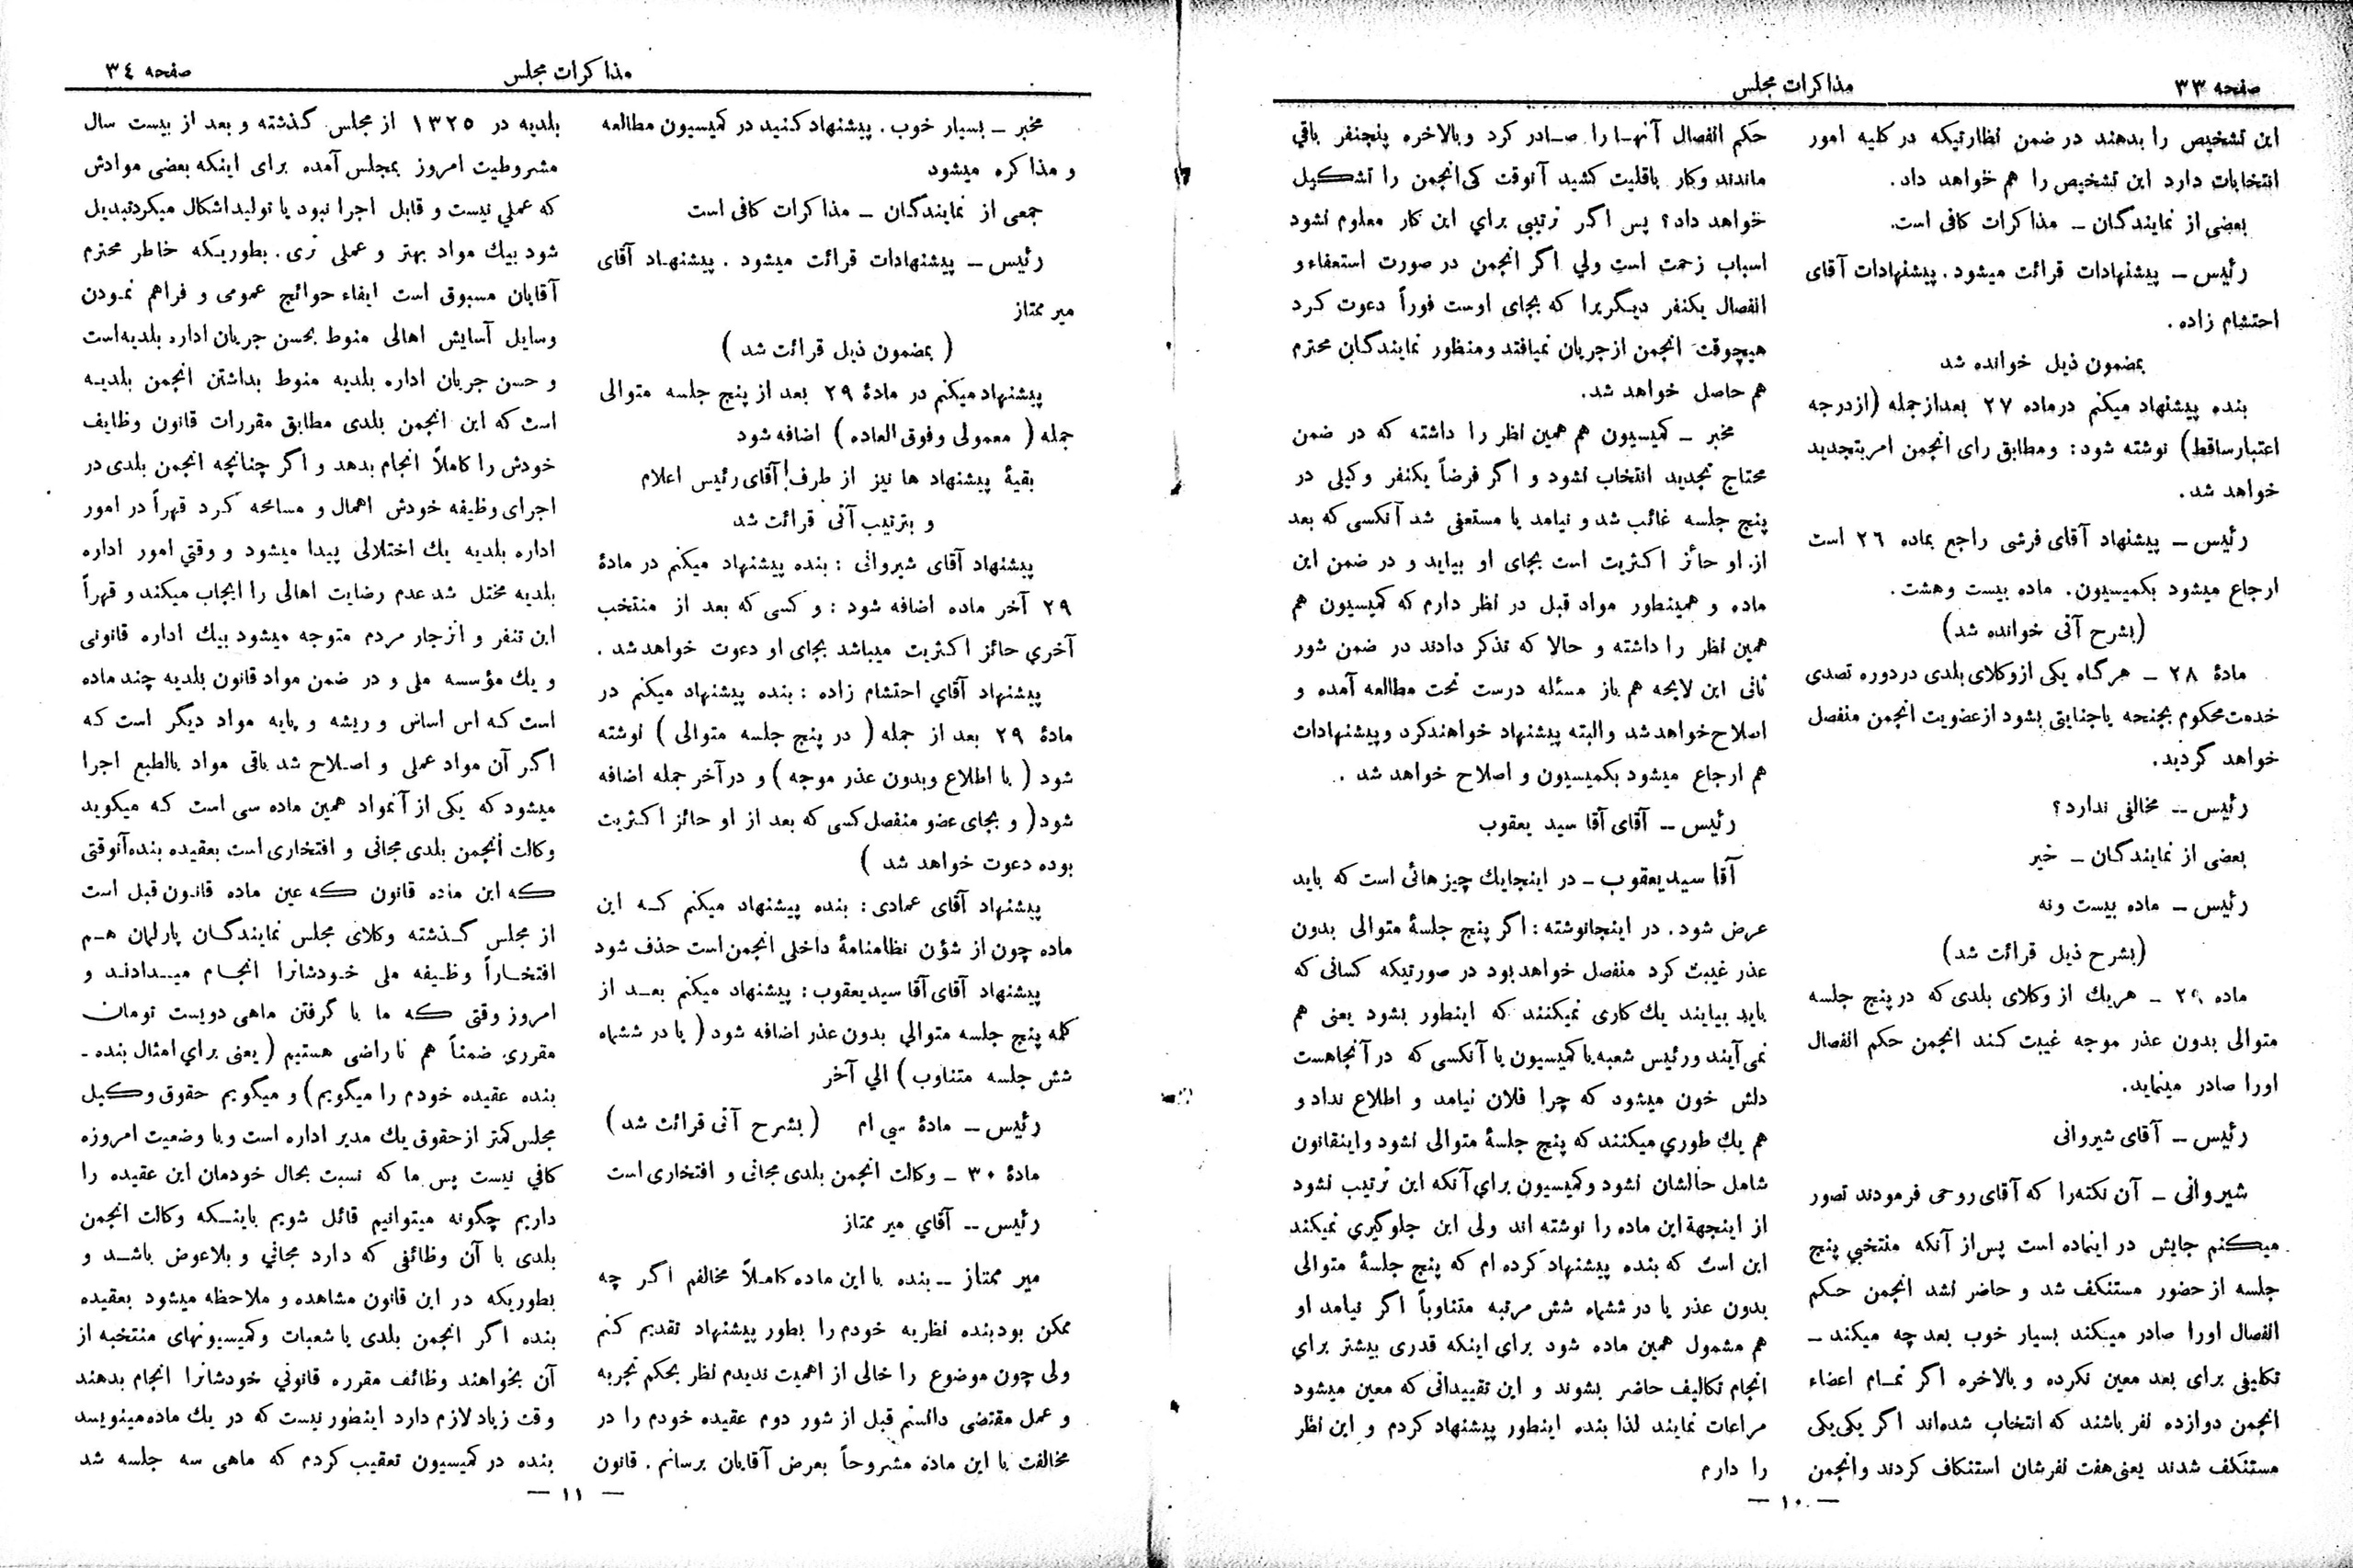 صفحه ٣٣
مذاکرات مجلس
این تشخیص را بدهند در ضمن نظارتیکه در کلیه امور
انتخابات دارد این تشخیص را هم خواهد داد.
بعضی از نمایندگان – مذاکرات کافی است.
رئیس – پیشنهادات قرائت میشود. پیشنهادات آقای
احتشام زاده.
بمضمون ذیل خوانده شد
بنده پیشنهاد میکنم درماده ٢٧ بعدازجمله (ازدرجه
اعتبارساقط) نوشته شود: ومطابق رای انجمن امربتجدید
خواهد شد.
رئیس – پیشنهاد آقای فرشی راجع بماده ٢٦ است
ارجاع میشود بکمیسیون. ماده بیست وهشت.
(بشرح آتی خوانده شد)
مادۀ ٢٨ – هرگاه یکی ازوکلای بلدی دردوره تصدی
خدمت محکوم بجنحه یاجنایتی بشود ازعضویت انجمن منفصل
خواهد گردید.
رئیس – مخالفی ندارد؟
بعضی از نمایندگان – خیر
رئیس – ماده بیست ونه
(بشرح ذیل قرائت شد)
ماده ٢٩ – هریك از وکلای بلدی که در پنج جلسه
متوالی بدون عذر موجه غیبت کند انجمن حکم انفصال
اورا صادر مینماید.
رئیس – آقای شیروانی
شیروانی – آن نکته‌را که آقای روحی فرمودند تصور
میکنم جایش در اینماده است پس‌از آنکه منتخبي پنج
جلسه از حضور مستنکف شد و حاضر نشد انجمن حکم
انفصال اورا صادر میکند بسیار خوب بعد چه میکند –
تکلیفی برای بعد معین نکرده و بالاخره اگر تمام اعضاء
انجمن دوازده نفر باشند که انتخاب شده‌اند اگر یکی‌یکی
مستنکف شدند یعنی هفت نفرشان استنکاف کردند وانجمن
حکم انفصال آنها را صادر کرد وبالاخره پنجنفر باقي
ماندند وکار باقلیت کشید آنوقت کی انجمن را تشکیل
خواهد داد؟ پس اگر ترتیبي براي این کار معلوم نشود
اسباب زحمت است ولي اگر انجمن در صورت استعفاء و
انفصال یکنفر دیگریرا که بجای اوست فوراً دعوت کرد
هیچوقت انجمن ازجریان نمیافتد ومنظور نمایندگان محترم
هم حاصل خواهد شد.
مخبر – کمیسیون هم همین نظر را داشته که در ضمن
محتاج تجدید انتخاب نشود و اگر فرضاً یکنفر وکیلی در
پنج جلسه غائب شد و نیامد یا مستعفی شد آنکسی که بعد
از. او حائز اکثریت است بجای او بیاید و در ضمن این
ماده و همینطور مواد قبل در نظر دارم که کمیسیون هم
همین نظر را داشته و حالا که تذکر دادند در ضمن شور
ثانی این لایحه هم باز مسئله درست تحت مطالعه آمده و
اصلاح خواهد شد والبته پیشنهاد خواهندکرد وپیشنهادات
هم ارجاع میشود بکمیسیون و اصلاح خواهد شد .
رئیس – آقای آقا سید یعقوب
آقا سیدیعقوب – در اینجایك چیزهائی است که باید
عرض شود. در اینجانوشته: اگر پنج جلسۀ متوالی بدون
عذر غیبت کرد منفصل خواهد بود در صورتیکه کسانی که
باید بیایند یك کاری نمیکنند که اینطور بشود یعنی هم
نمی آیند ورئیس شعبه یا کمیسیون یا آنکسی که در آنجاهست
دلش خون میشود که چرا فلان نیامد و اطلاع نداد و
هم یك طوري میکنند که پنج جلسۀ متوالی نشود واینقانون
شامل حالشان نشود وکمیسیون برای آنکه این ترتیب نشود
از اینجهة این ماده را نوشته اند ولی این جلوگیري نمیکند
این است که بنده پیشنهاد کرده ام که پنج جلسۀ متوالی
بدون عذر یا در ششماه شش مرتبه متناوباً اگر نیامد او
هم مشمول همین ماده شود برای اینکه قدری بیشتر برای
انجام تکالیف حاضر بشوند و این تقییداتی که معین میشود
مراعات نمایند لذا بنده اینطور پیشنهاد کردم و این نظر
را دارم
– ١٠ –
صفحه ٣٤
مذاکرات مجلس
مخبر – بسیار خوب. پیشنهاد کنید در کمیسیون مطالعه
و مذاکره میشود
جمعی از نمایندگان – مذاکرات کافی است
رئیس – پیشنهادات قرائت میشود . پیشنهاد آقای
میر ممتاز
( بمضمون ذیل قرائت شد )
پیشنهاد میکنم در مادۀ ٢٩ بعد از پنج جلسه متوالی
جمله ( معمولی وفوق العاده ) اضافه شود
بقیۀ پیشنهاد ها نیز از طرف آقای رئیس اعلام
و بترتیب آتی قرائت شد
پیشنهاد آقای شیروانی : بنده پیشنهاد میکنم در مادۀ
٢٩ آخر ماده اضافه شود : و کسی که بعد از منتخب
آخري حائز اکثریت میباشد بجای او دعوت خواهد شد .
پیشنهاد آقاي احتشام زاده : بنده پیشنهاد میکنم در
مادۀ ٢٩ بعد از جمله ( در پنج جلسه متوالی ) نوشته
شود ( با اطلاع وبدون عذر موجه ) و درآخر جمله اضافه
شود( و بجای عضو منفصل کسی که بعد از او حائز اکثریت
بوده دعوت خواهد شد )
پیشنهاد آقای عمادی : بنده پیشنهاد میکنم که این
ماده چون از شؤن نظامنامۀ داخلی انجمن است حذف شود
پیشنهاد آقای آقا سیدیعقوب : پیشنهاد میکنم بعد از
کلمه پنج جلسه متوالي بدون عذر اضافه شود ( یا در ششماه
شش جلسه متناوب ) الي آخر
رئیس – مادۀ سي ام ( بشرح آتی قرائت شد )
مادۀ ٣٠ – وکالت انجمن بلدی مجانی و افتخاری است
رئیس – آقاي میر ممتاز
میر ممتاز – بنده با این ماده کاملاً مخالفم اگر چه
ممکن بودبنده نظریه خودم را بطور پیشنهاد تقدیم کنم
ولی چون موضوع را خالی از اهمیت ندیدم نظر بحکم تجربه
و عمل مقتضی دانستم قبل از شور دوم عقیده خودم را در
مخالفت با این ماده مشروحاً بعرض آقایان برسانم . قانون
بلدیه در ١٣٢٥ از مجلس گذشته و بعد از بیست سال
مشروطیت امروز بمجلس آمده برای اینکه بعضی موادش
که عملي نیست و قابل اجرا نبود یا تولیداشکال میکردتبدیل
شود بیك مواد بهتر و عملی تری. بطوریکه خاطر محترم
آقایان مسبوق است ایفاء حوائج عمومی و فراهم نمودن
وسایل آسایش اهالی منوط بحسن جریان اداره بلدیه‌است
و حسن جریان اداره بلدیه منوط بداشتن انجمن بلدیه
است که این انجمن بلدی مطابق مقررات قانون وظایف
خودش را کاملاً انجام بدهد و اگر چنانچه انجمن بلدی در
اجرای وظیفه خودش اهمال و مسامحه کرد قهراً در امور
اداره بلدیه یك اختلالی پیدا میشود و وقتي امور اداره
بلدیه مختل شد عدم رضایت اهالی را ایجاب میکند و قهراً
این تنفر و انزجار مردم متوجه میشود بیك اداره قانونی
و یك مؤسسه ملی و در ضمن مواد قانون بلدیه چند ماده
است که اس اساس و ریشه و پایه مواد دیگر است که
اگر آن مواد عملی و اصلاح شد باقی مواد بالطبع اجرا
میشود که یکی از آنمواد همین ماده سی است که میگوید
وکالت انجمن بلدی مجانی و افتخاری است بعقیده بنده‌آنوقتی
که این ماده قانون که عین ماده قانون قبل است
از مجلس گذشته وکلای مجلس نمایندگان پارلمان هم
افتخاراً وظیفه ملی خودشانرا انجام میدادند و
امروز وقتی که ما با گرفتن ماهی دویست تومان
مقرری ضمناً هم ناراضی هستیم ( یعنی براي امثال بنده -
بنده عقیده خودم را میگویم ) و میگویم حقوق وکیل
مجلس کمتر از حقوق یك مدیر اداره است وبا وضعیت امروزه
کافي نیست پس ما که نسبت بحال خودمان این عقیده را
داریم چگونه میتوانیم قائل شویم باینکه وکالت انجمن
بلدی با آن وظائفی که دارد مجانی و بلاعوض باشد و
بطوریکه در این قانون مشاهده و ملاحظه میشود بعقیده
بنده اگر انجمن بلدی یا شعبات وکمیسیونهای منتخبه از
آن بخواهند وظائف مقرره قانوني خودشانرا انجام بدهند
وقت زیاد لازم دارد اینطور نیست که در یك ماده مینویسد
بنده در کمیسیون تعقیب کردم که ماهی سه جلسه شد
– ١١ –